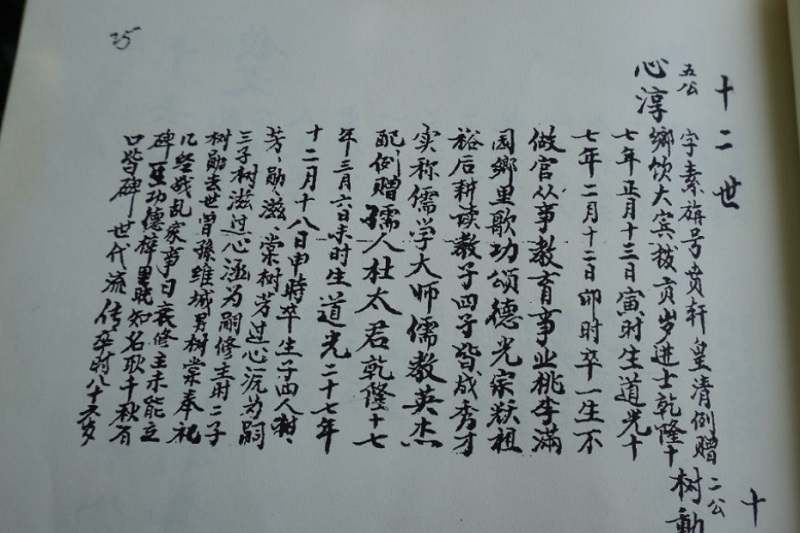 25
十二世
五公
心淳
字素旃号贲轩皇清例赠
鄉饮大宾拔贡岁进士乾隆十
七年正月十三日寅时生道光十
七年二月十二日卯时卒一生不
做官从事教育事业桃李滿
园鄉里歌功頌德光宗耀祖
裕后耕读教子四子皆成秀才
实称儒学大师儒教英杰
配例赠孺人杜太君乾隆十七
年三月六日未时生道光二十七年
十二月十八日申時卒生子四人樹
芳、勋、滋、棠树芳过心沅为嗣
三子树滋过心涵为嗣修主时二子
树勋去世曾孫维城男树棠奉祀
几经战乱家事日衰修主未能立
碑功德梓里晓知名耿千秋有
口皆碑世代流传卒时八十六岁
十
二公
树勳